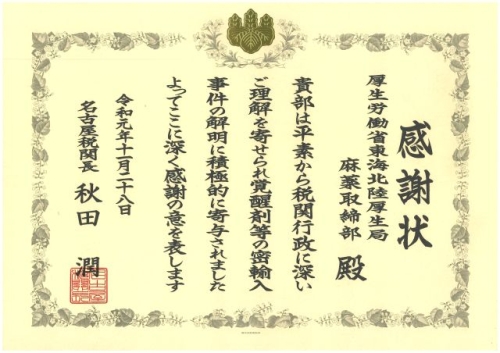 感謝状
厚生労働省東海北陸厚生局
麻薬取締部 殿
貴部は平素から税関行政に深い
ご理解を寄せられ覚醒剤等の密輸入
事件の解明に積極的に寄与されました
よってここに深く感謝の意を表します
令和元年十一月二十八日
名古屋税関長 秋田 潤